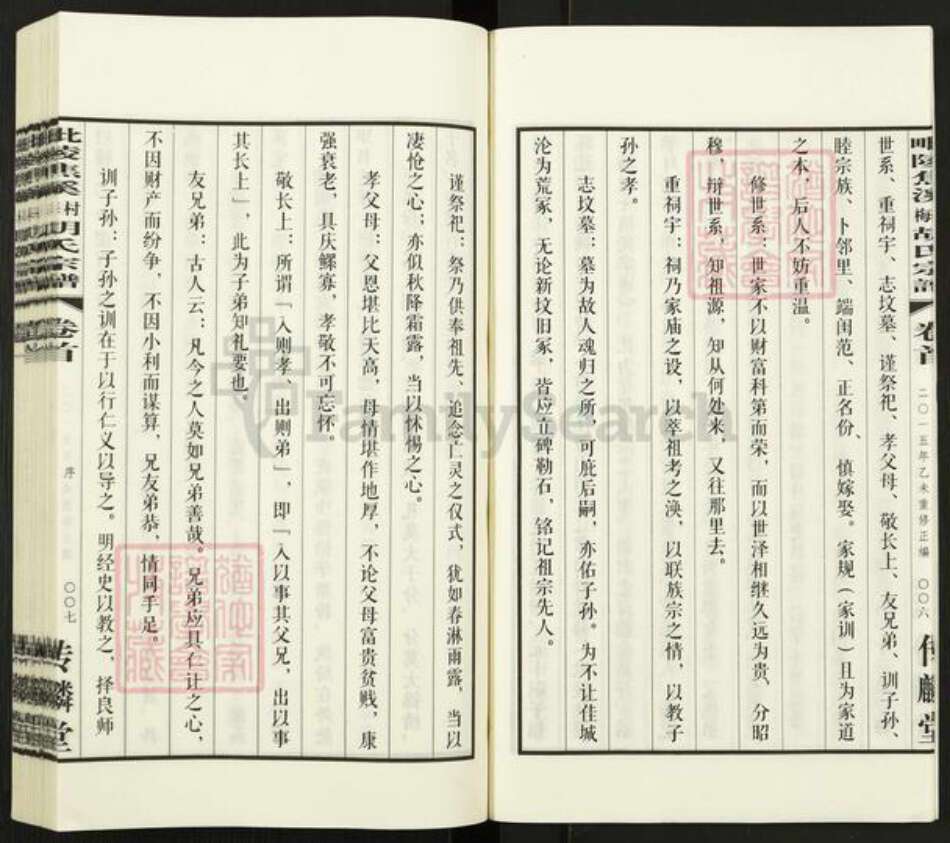 世系、重祠宇、志坟墓、谨祭祀、孝父母、敬长上、友兄弟、训子孙、
睦宗族、卜邻里、端闺范、正名份、慎嫁娶。家规（家训）且为家道
之本，后人不妨重温。
修世系：世家不以财富科第而荣，而以世泽相继久远为贵，分昭
穆，辩世系，知祖源，知从何处来，又往那里去。
重祠宇：祠乃家庙之设，以萃祖考之涣，以联族宗之情，以教子
孙之孝。
志坟墓：墓为故人魂归之所，可庇后嗣，亦佑子孙。为不让佳城
沦为荒冢，无论新坟旧冢，皆应立碑勒石，铭记祖宗先人。
二〇一五年乙未重修正编
〇〇六
谨祭祀：祭乃供奉祖先、追念亡灵之仪式，犹如春淋雨露，当以
凄怆之心；亦似秋降霜露，当以怵惕之心。
孝父母：父恩堪比天高，母情堪作地厚，不论父母富贵贫贱，康
强衰老，具庆鳏寡，孝敬不可忘怀。
敬长上：所谓「入则孝、出则弟」，即「入以事其父兄，出以事
其长上」，此为子弟知礼要也。
友兄弟：古人云：凡今之人莫如兄弟善哉。兄弟应具仁让之心，
不因财产而纷争，不因小利而谋算，兄友弟恭，情同手足。
训子孙：子孙之训在于以行仁义以导之。明经史以教之，择良师
胡氏宗谱
卷首
序
〇〇七
FamilySearch